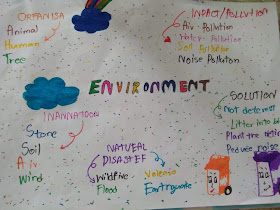 ORGANISA
Animal
Humman
Tree
INPACT/POLLUTION
Air Pollution
Water Pollution
Soil Pollution
Noise Pollution
ENVIRONMENT
INANNATDON
Stone
Soil
Air
Wind
NATURAL
DISASTEF
Wildfire
Flood
Volcano
Earthquake
SOLUTION
Not deforest
Litter into bi
Plant tree
Reduce noise